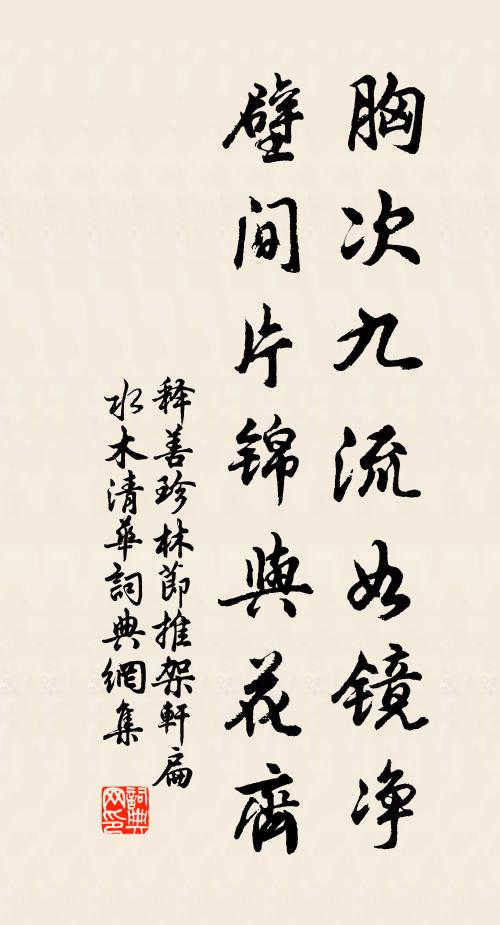 胸次九流如镜净
壁间片锦與花齊
释善珍林節推架軒扁
水木清華詞典網集
詞典网印